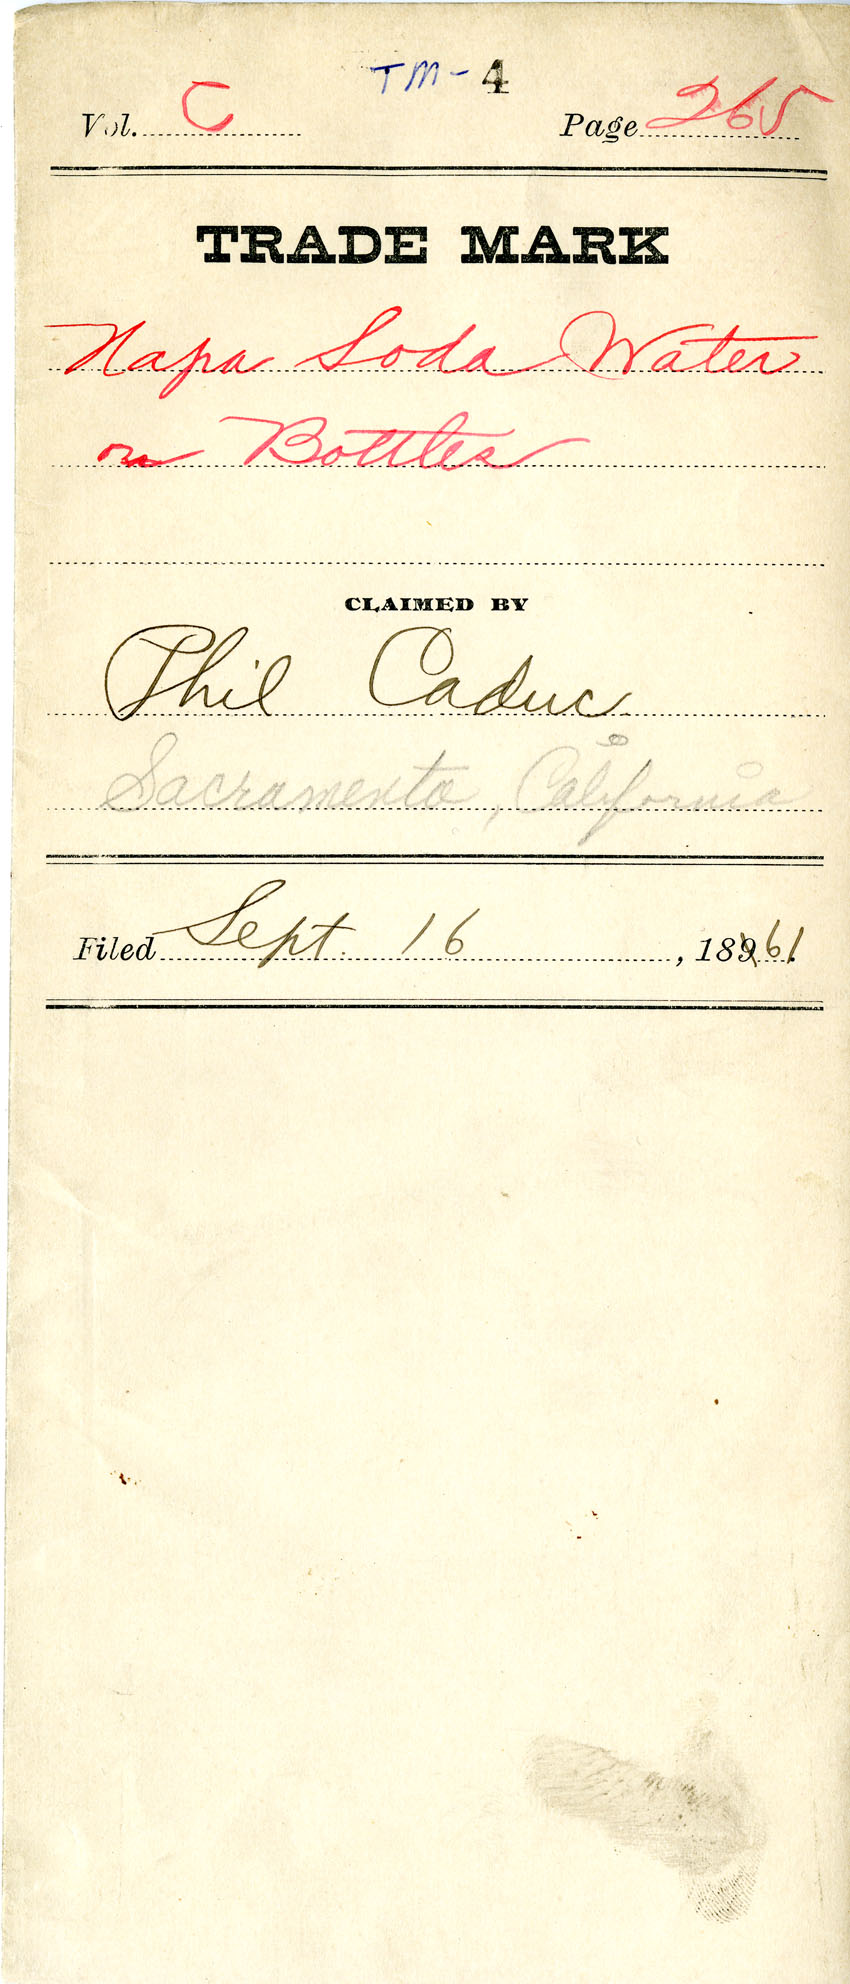 TM- 4
Vol. C Page 265
TRADE MARK
Napa Soda Water
on Bottles
CLAIMED BY
Phil Caduc
Sacramento, California
Filed Sept. 16, 18961.